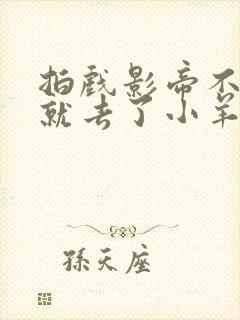 拍戏影帝不
就去了小羊
孫天座